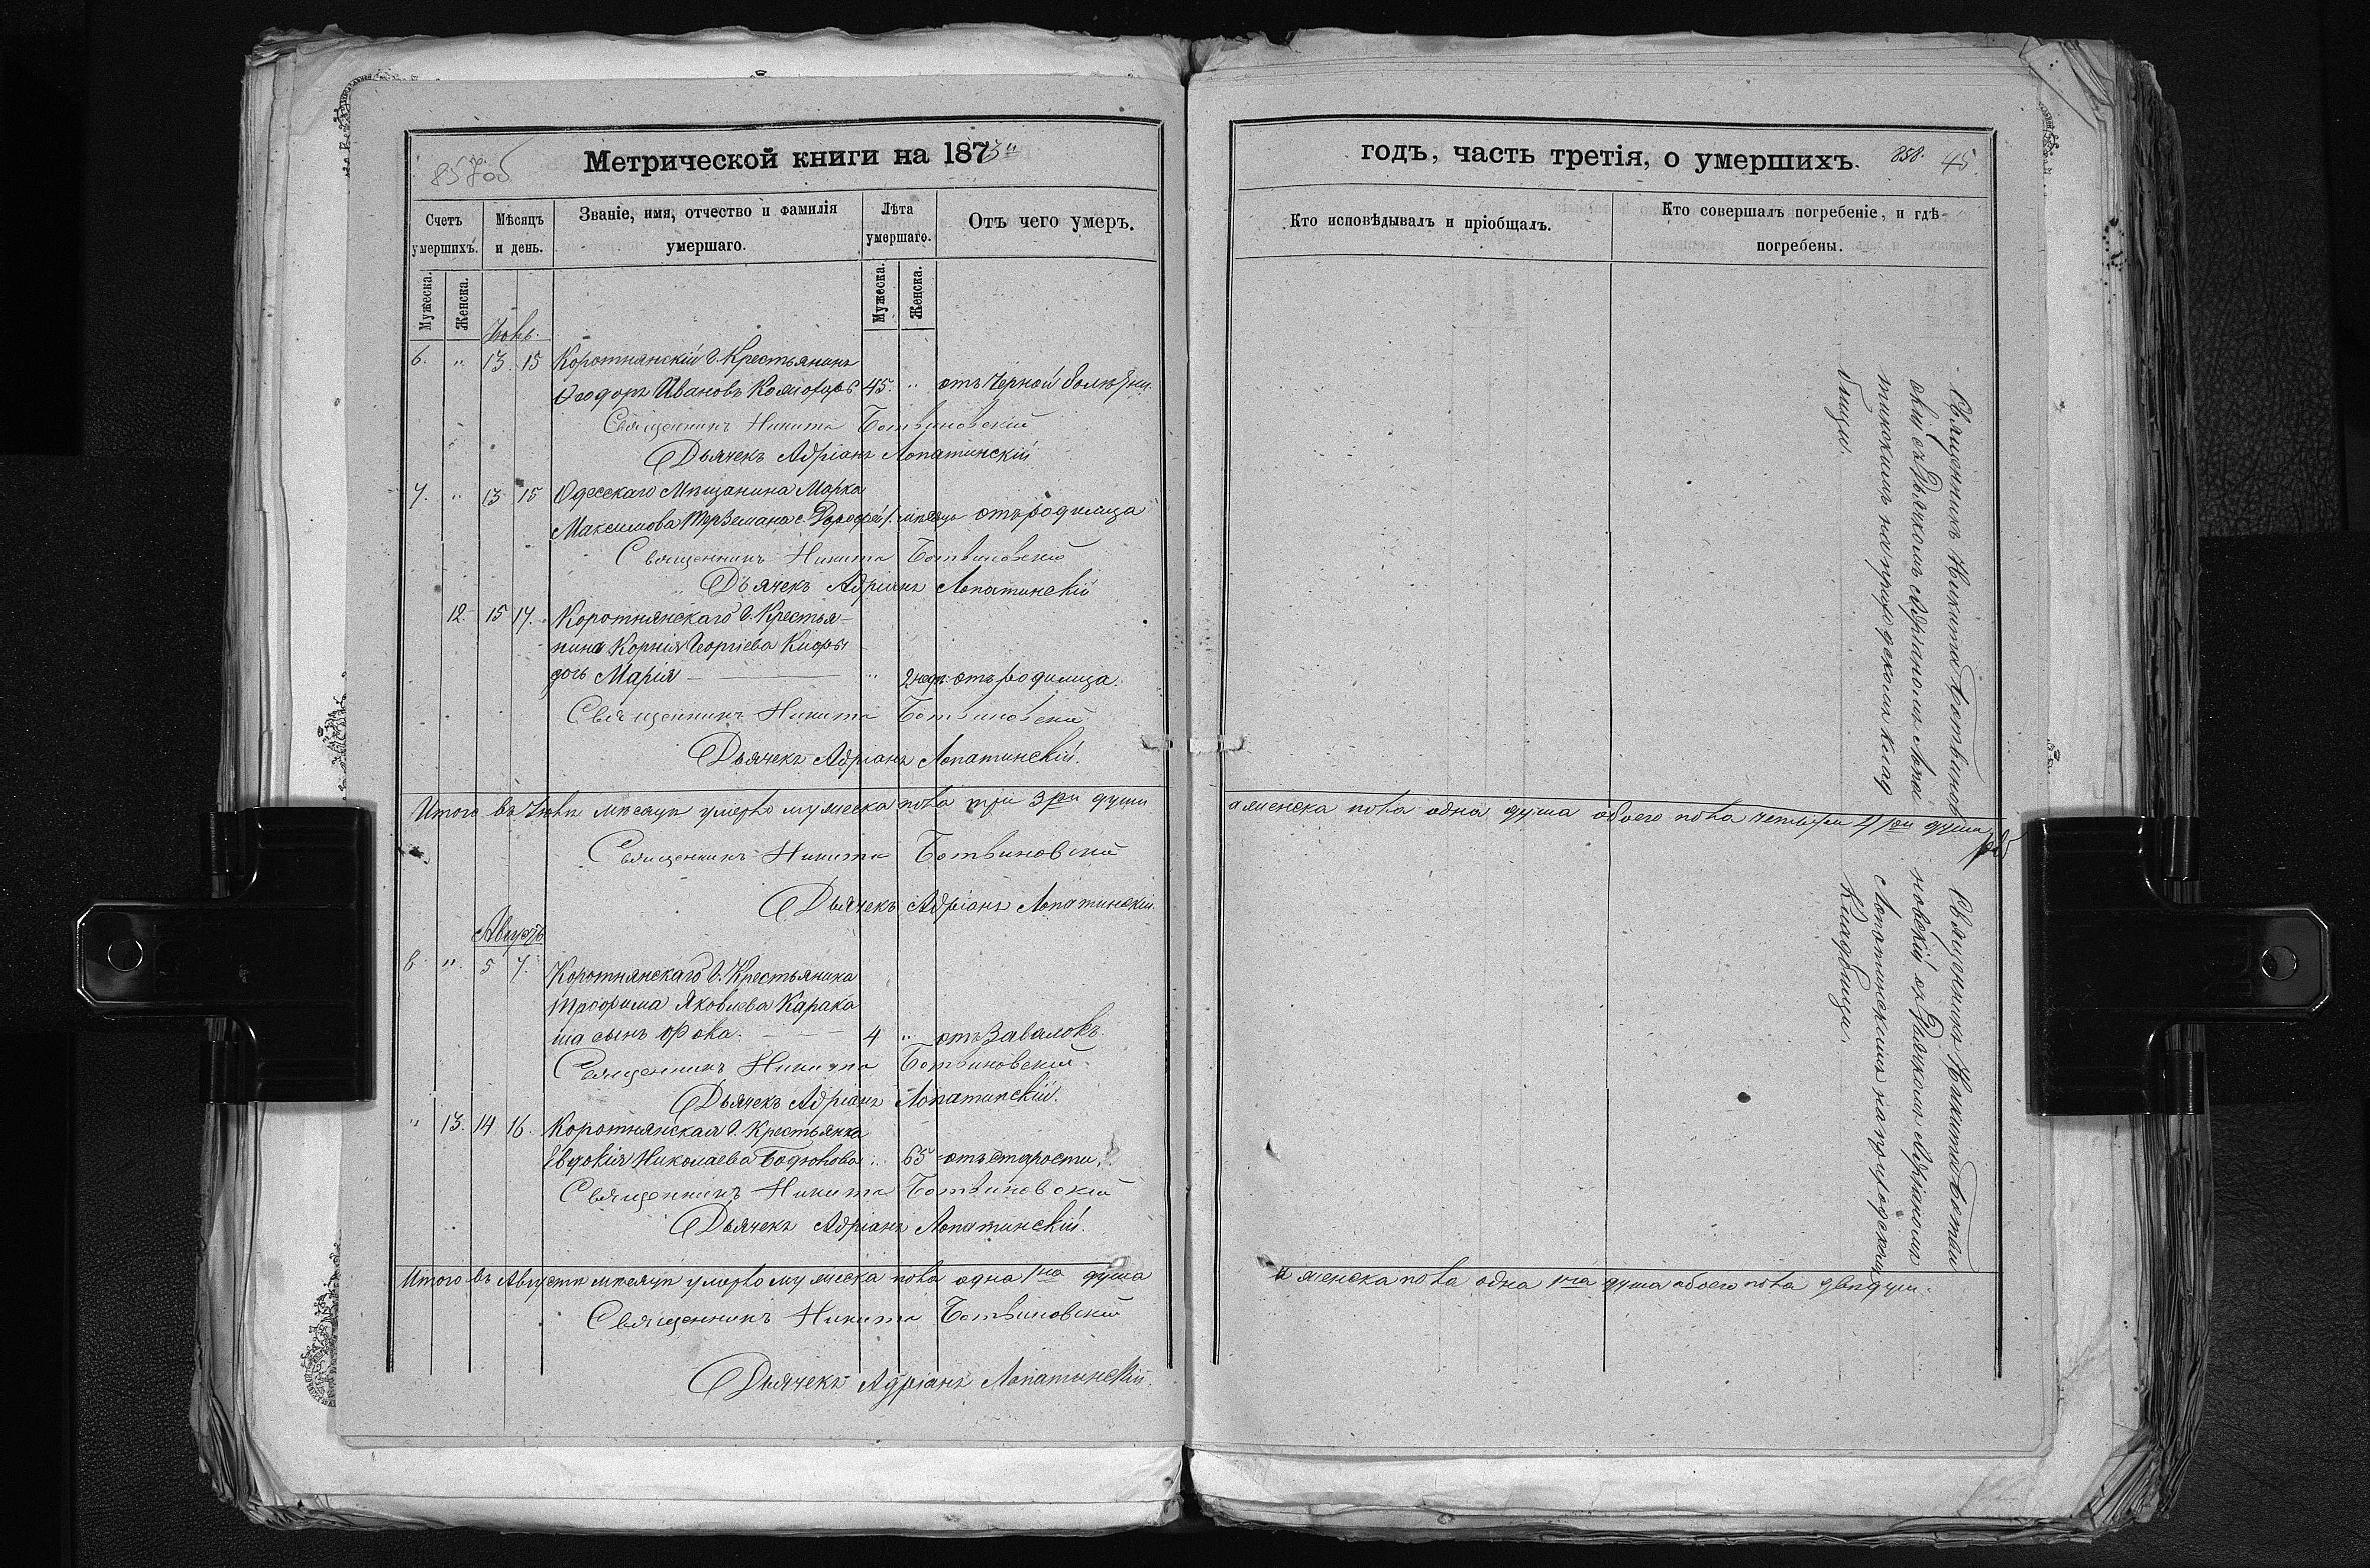 857 об
Метрической книги на 1873й
Счетъ умершихъ.
Мѣсяцъ и день.
Званіе, имя, отчество и фамилія умершаго.
Лѣта умершаго.
Отъ чего умеръ.
Мужеска.
Женска.
Мужеска.
Женска.
6. " 13. 15 Коротнянскій б. Крестьянинъ
Ѳеодоръ Ивановъ 45. " отъ черной болѣзни.
Священникъ Никита Ботвиновскій
Дьячекъ Адріанъ Лопатинскій
7. " 13 15 Одесскаго Мѣщанина Марка
Максимова с. Дорофей 1. мѣсяцъ отъ родимца
Священникъ Никита Ботвиновскій
Дьячекъ Адріанъ Лопатинскій
12. 15 17. Коротнянскаго б. Крестья-
нина Корнія Георгіева
дочь Марія " 2 нед. отъ родимца.
Священникъ Никита Ботвиновскій
Дьячекъ Адріанъ Лопатинскій.
Итого въ мѣсяцѣ умерло мужеска пола три 3ри души
Священникъ Никита Ботвиновскій
Дьячекъ Адріанъ Лопатинскій
Августъ
8. " 5 7. Коротнянскаго б. Крестьянина
Трофима Яковлева Карака
ша сынъ Фока. 4 " отъ Завалокъ.
Священникъ Никита Ботвиновскій
Дьячекъ Адріанъ Лопатинскій.
" 13. 14 16. Коротнянская б. Крестьянка
Евдокія Николаева Бодюкова " 65 отъ старости.
Священникъ Никита Ботвиновскій
Дьячекъ Адріанъ Лопатинскій.
Итого въ Августѣ мѣсяцѣ умерло мужеска пола одна 1на душа
Священникъ Никита Ботвиновскій
Дьячекъ Адріанъ Лопатинскій.
годъ, часть третія, о умершихъ.
858. 45.
Кто исповѣдывалъ и пріобщалъ.
Кто совершалъ погребеніе, и гдѣ погребены.
Священникъ Никита Ботвинов
скій съ Дьячкомъ Адріаномъ Лопа
тинскимъ на приходскомъ клад
бищи.
а женска пола одна душа обоего пола четыри 4ри души
Священникъ Никита Ботви
новскій съ Дьячкомъ Адріаномъ
Лопатинскимъ на приходскомъ
Кладбищи.
а женска пола одна 1на душа обоего пола двѣ души.